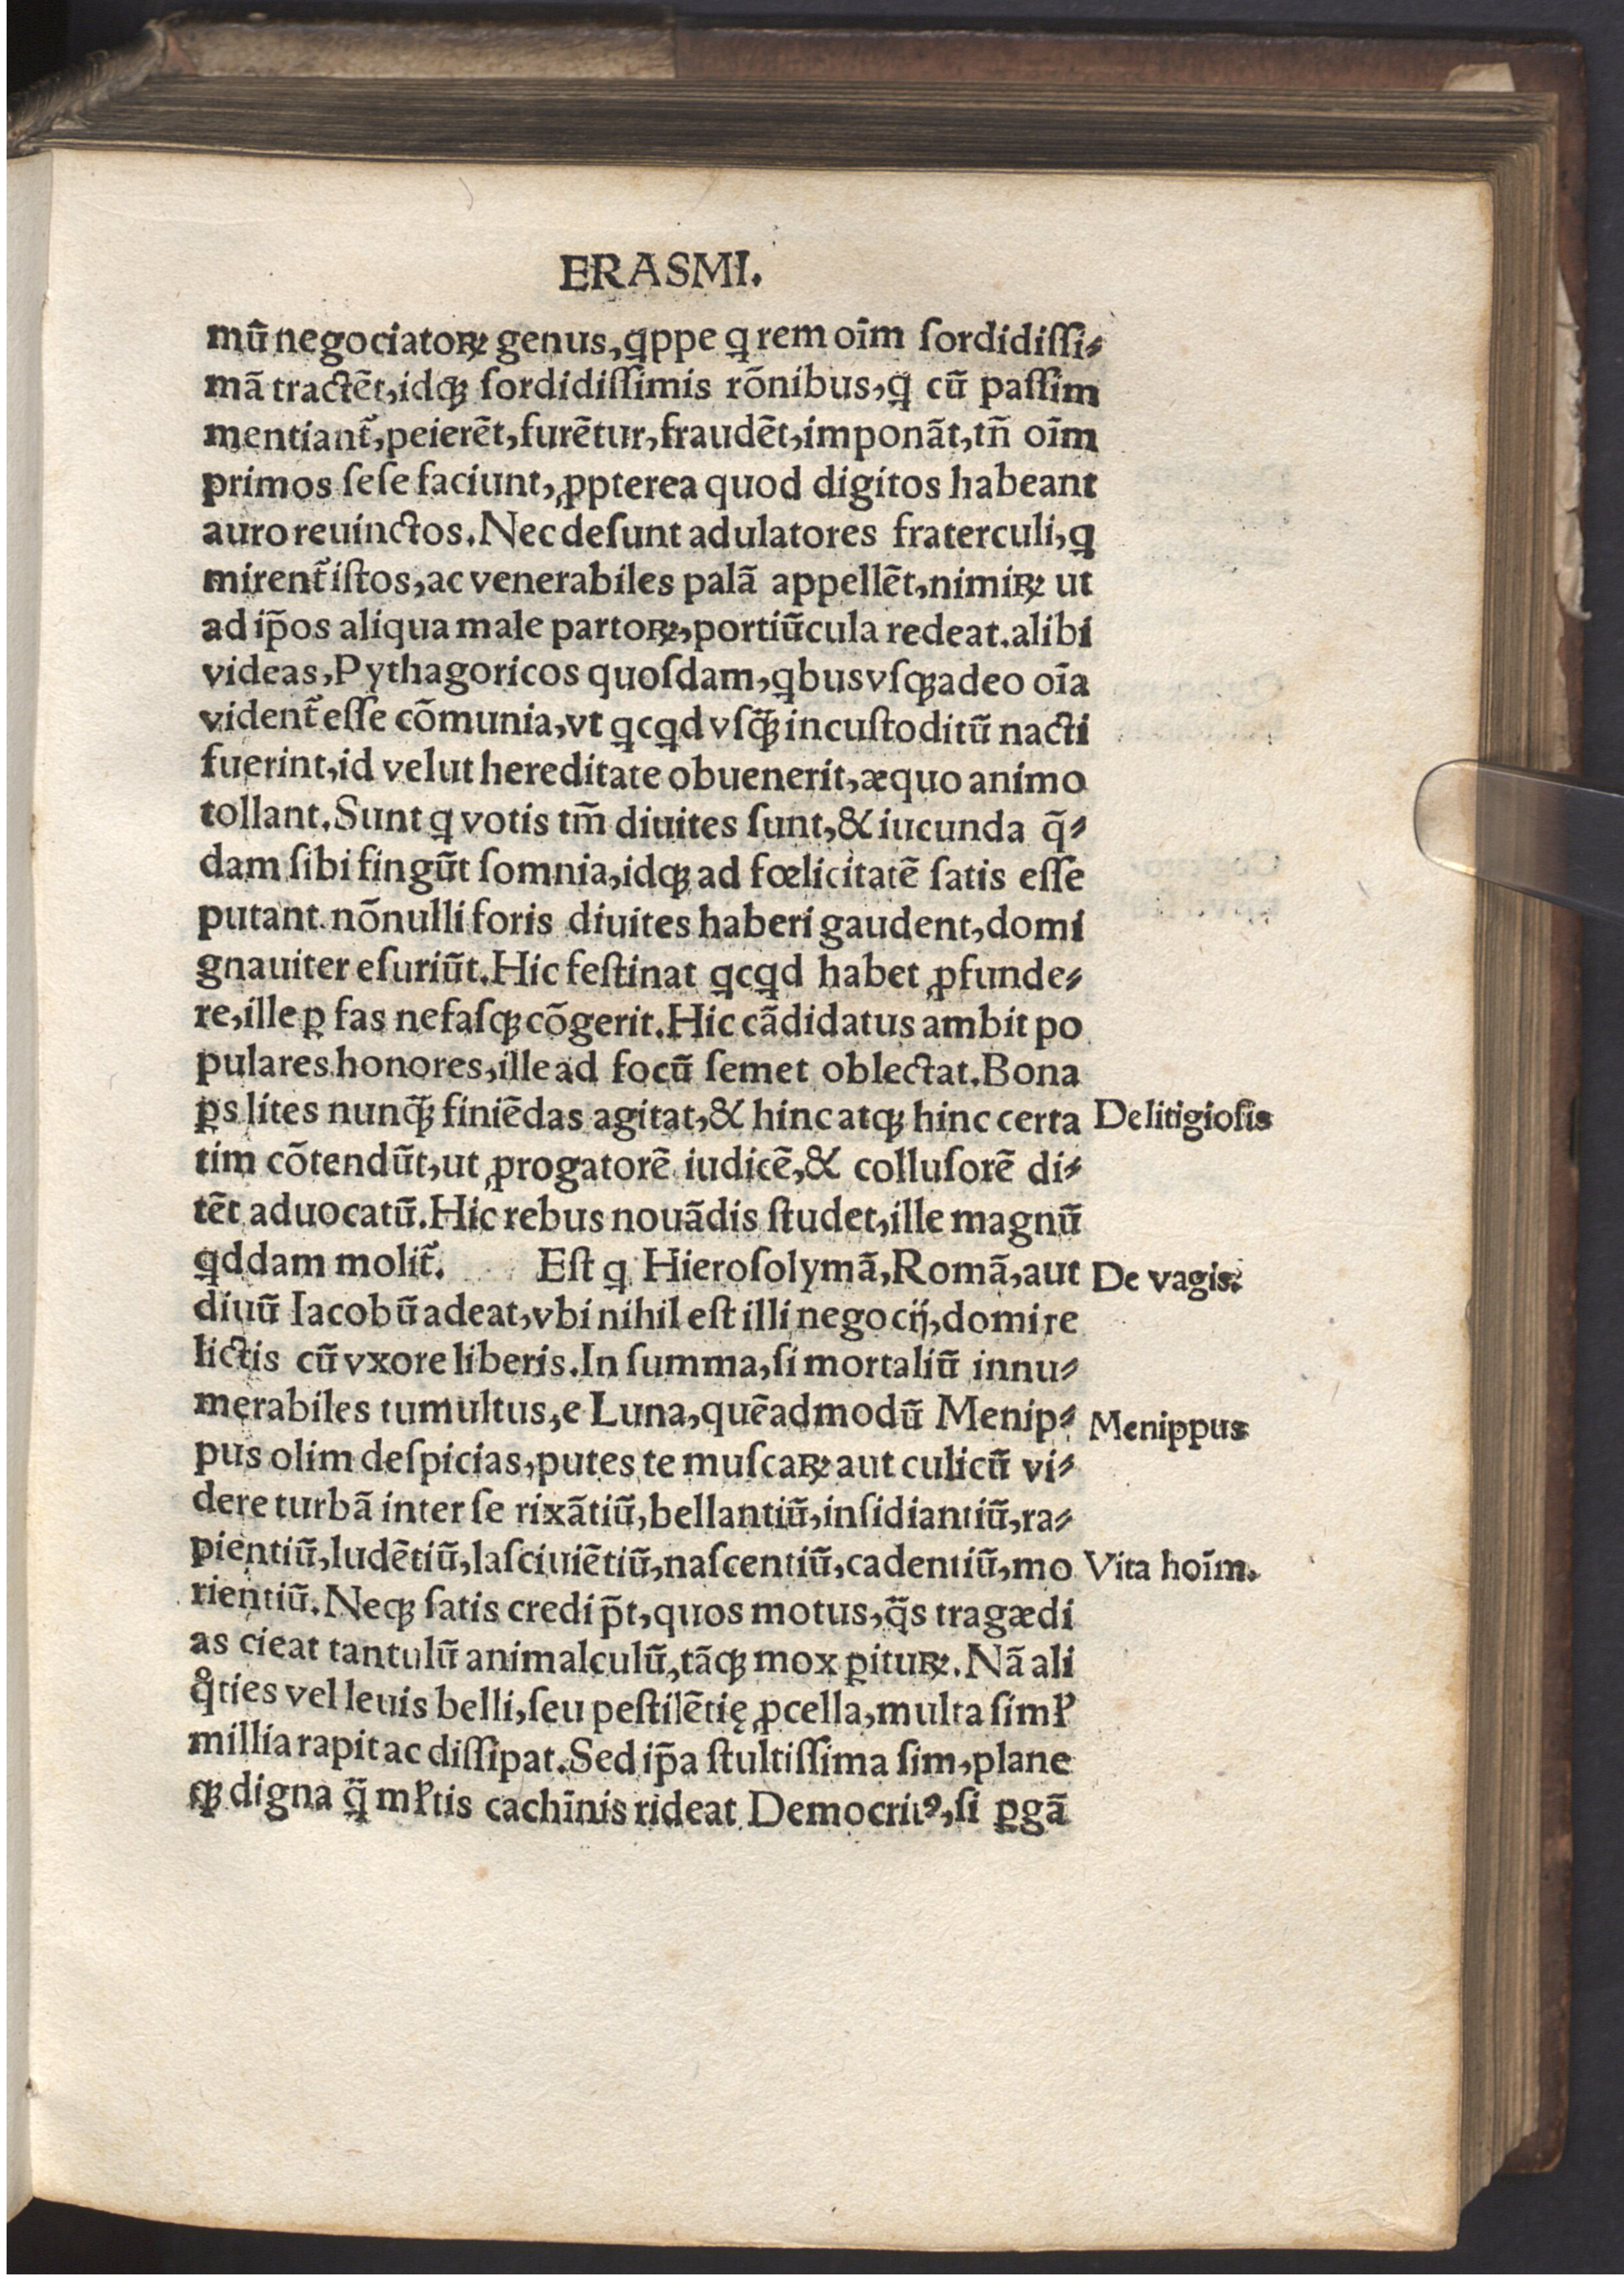 ERASMI.
mū negociatoꝝ genus, ꝗppe ꝗ rem oīm ſordidiſſi⸗
mā tractēt, idqꝫ ſordidiſſimis rōnibus, ꝗ cū paſſim
mentiant᷑, peierēt, furētur, fraudēt, imponāt, tn̄ oīm
primos ſeſe faciunt, ꝓpterea quod digitos habeant
auro reuinctos. Nec deſunt adulatores fraterculi, ꝗ
mirent᷑ iſtos, ac venerabiles palā appellēt, nimiꝝ ut
ad ip̄os aliqua male partoꝝ, portiūcula redeat. alibi
videas, Pythagoricos quoſdam, ꝗbus vſqꝫ adeo oīa
vident᷑ eſſe cōmunia, vt ꝗcꝗd vſq̈ꝫ incuſtoditū nacti
fuerint, id velut hereditate obuenerit, æquo animo
tollant. Sunt ꝗ votis tm̄ diuites ſunt, & iucunda q̄⸗
dam ſibi fingūt ſomnia, idqꝫ ad fœlicitatē ſatis eſſe
putant. nōnulli foris diuites haberi gaudent, domi
gnauiter eſuriūt. Hic feſtinat ꝗcꝗd habet ꝓfunde⸗
re, ille ꝑ fas nefaſqꝫ cōgerit. Hic cādidatus ambit po
pulares honores, ille ad focū ſemet oblectat. Bona
ꝑs lites nunq̈ꝫ finiēdas agitat, & hinc atqꝫ hinc certa
De litigioſis
tim cōtendūt, ut ꝓrogatorē iudicē, & colluſorē di⸗
tēt aduocatū. Hic rebus nouādis ſtudet, ille magnū
ꝗddam molit᷑. Eſt ꝗ Hieroſolymā, Romā, aut
De vagis.
diuū Iacobū adeat, vbi nihil eſt illi negocij, domi re
lictis cū vxore liberis. In ſumma, ſi mortaliū innu⸗
merabiles tumultus, e Luna, quēadmodū Menip⸗
Menippus
pus olim deſpicias, putes te muſcaꝝ aut culicū vi⸗
dere turbā inter ſe rixātiū, bellantiū, inſidiantiū, ra⸗
pientiū, ludētiū, laſciuiētiū, naſcentiū, cadentiū, mo
Vita hoīm.
rientiū. Neqꝫ ſatis credi p̄t, quos motus, q̈s tragædi
as cieat tantulū animalculū, tāqꝫ mox ꝑituꝝ. Nā ali
qͦties vel leuis belli, ſeu peſtilētię ꝓcella, multa simꝉ
millia rapit ac diſſipat. Sed ip̄a ſtultiſſima ſim, plane
qꝫ digna q̈̄ mꝉtis cachīnis rideat Democritꝰ, ſi ꝑgā